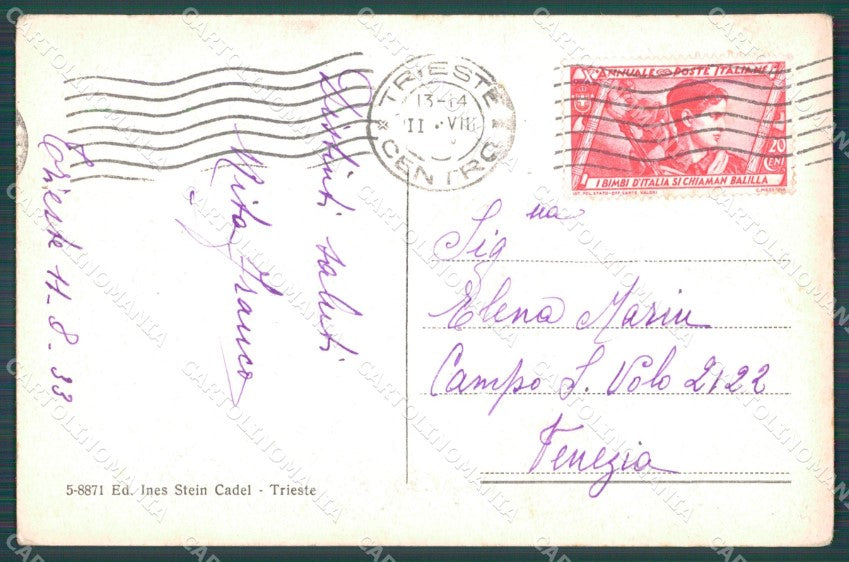 TRIESTE
13-14
11 · VIII
CENTRO
Xº ANNUALE POSTE ITALIANE
20
CENT
I BIMBI D'ITALIA SI CHIAMAN BALILLA
IST. POL. STATO-OFF. CARTE VALORI
Distinti saluti
Rita Franco
Trieste 11-8-33
Sig na
Elena Marin
Campo S. Polo 2122
Venezia
5-8871 Ed. Ines Stein Cadel - Trieste
CARTOLINOMANIA